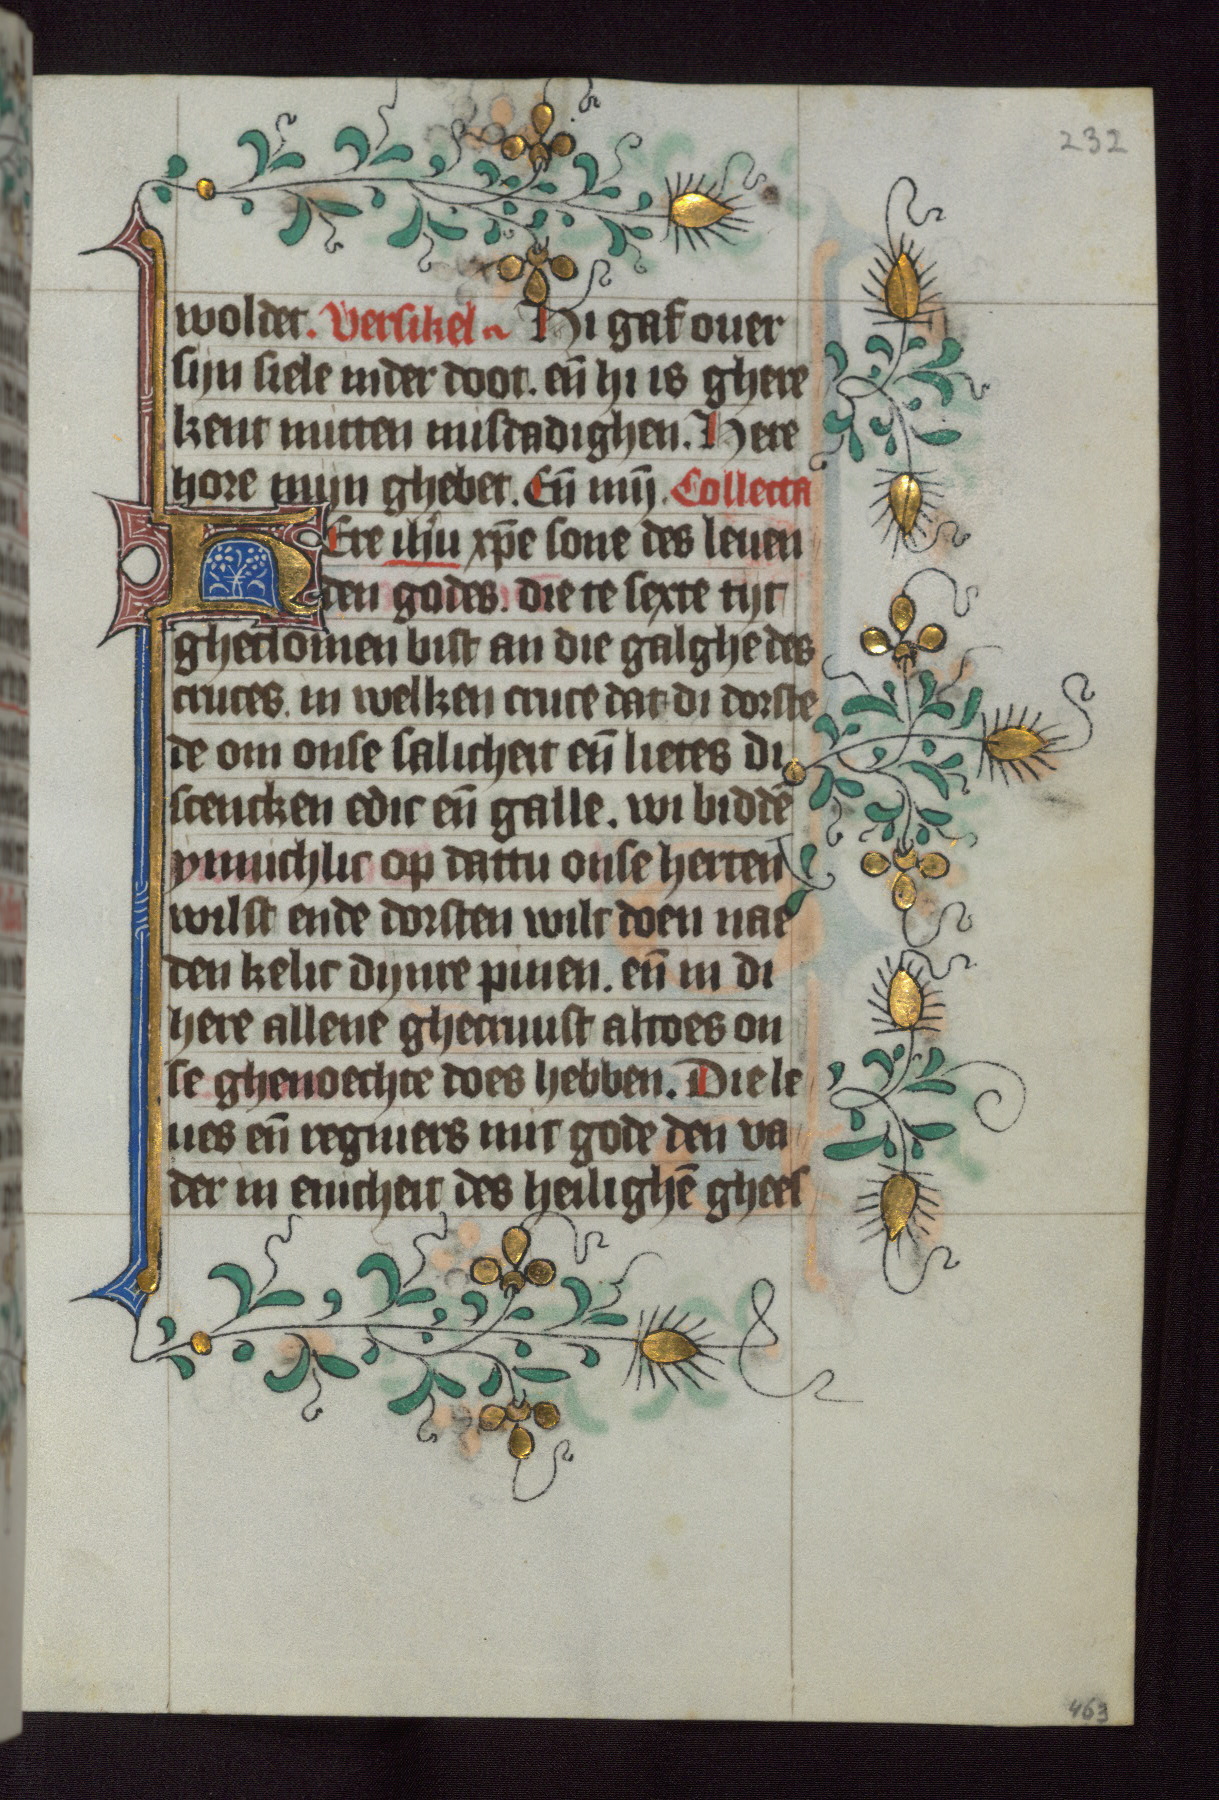 232
woldet. Versikel Hi gaf ouer
sijn siele inder doot. en̄ hi is ghere
kent mitten misdadighen. Here
hore mijn ghebet. En̄ mij. Collecta
HEre ihū xp̄e sone des leuen
den godes. die te sexte tijt
gheclomen bist an die galghe des
cruces. in welken cruce dat di dorste
de om onse salicheit en̄ lietes di
scencken edic en̄ galle. wi biddē
ynnichlic op dattu onse herten
wilst ende dorsten wilt doen nae
den kelic dijnre pinen. en̄ in di
here allene ghecruust altoes on
se ghenoechte does hebben. Die le
ues en̄ regniers mit gode den va
der in enicheit des heilighē ghees
463